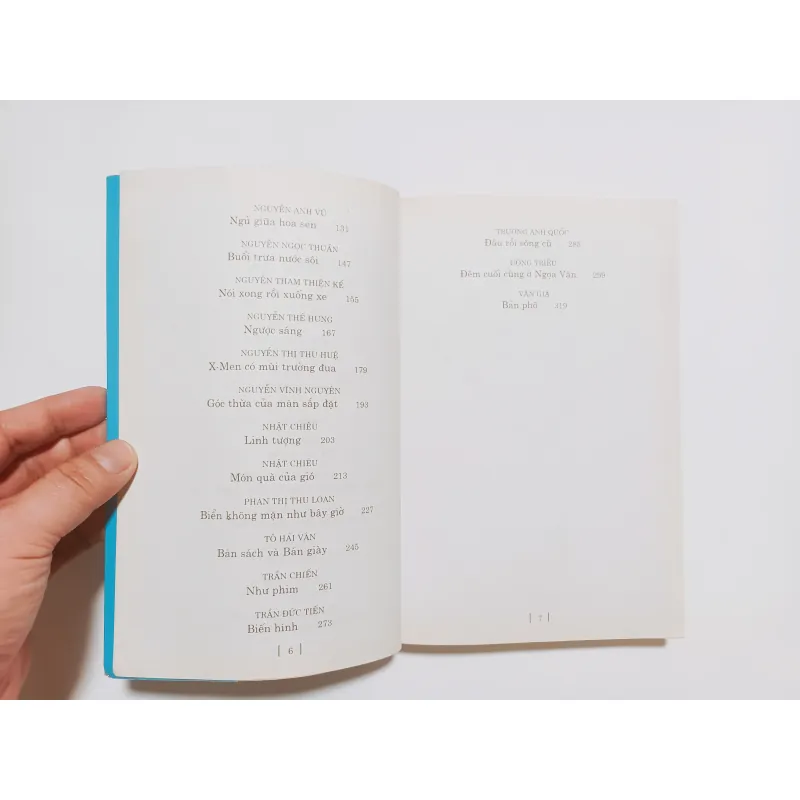 NGUYỄN ANH VŨ
Ngủ giữa hoa sen 131
NGUYỄN NGỌC THUẦN
Buổi trưa nước sôi 147
NGUYỄN THAM THIỆN KẾ
Nói xong rồi xuống xe 155
NGUYỄN THẾ HÙNG
Ngược sáng 167
NGUYỄN THỊ THU HUỆ
X-Men có mùi trường đua 179
NGUYỄN VĨNH NGUYÊN
Góc thừa của màn sắp đặt 193
NHẬT CHIÊU
Linh tượng 203
NHẬT CHIÊU
Món quà của gió 213
PHAN THỊ THU LOAN
Biển không mặn như bây giờ 227
TÔ HẢI VÂN
Bán sách và Bán giày 245
TRẦN CHIẾN
Như phim 261
TRẦN ĐỨC TIẾN
Biến hình 273
| 6 |
TRƯƠNG ANH QUỐC
Đâu rồi sông cũ 285
ĐÔNG TRIỀU
Đêm cuối cùng ở Ngọa Vân 299
VĂN GIÁ
Bản phố 319
| 7 |